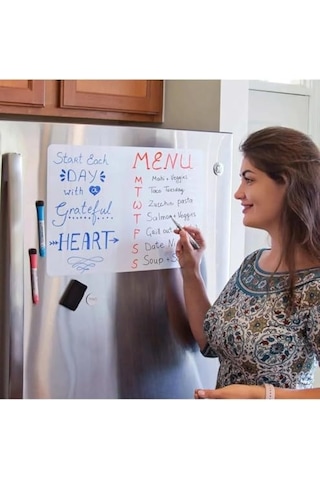 Start Each
DAY
with a
Grateful
HEART
MENU
M
T Taco Tuesday
W Zucchini pasta
T Salmon + Veggies
F
S Date
S Soup +